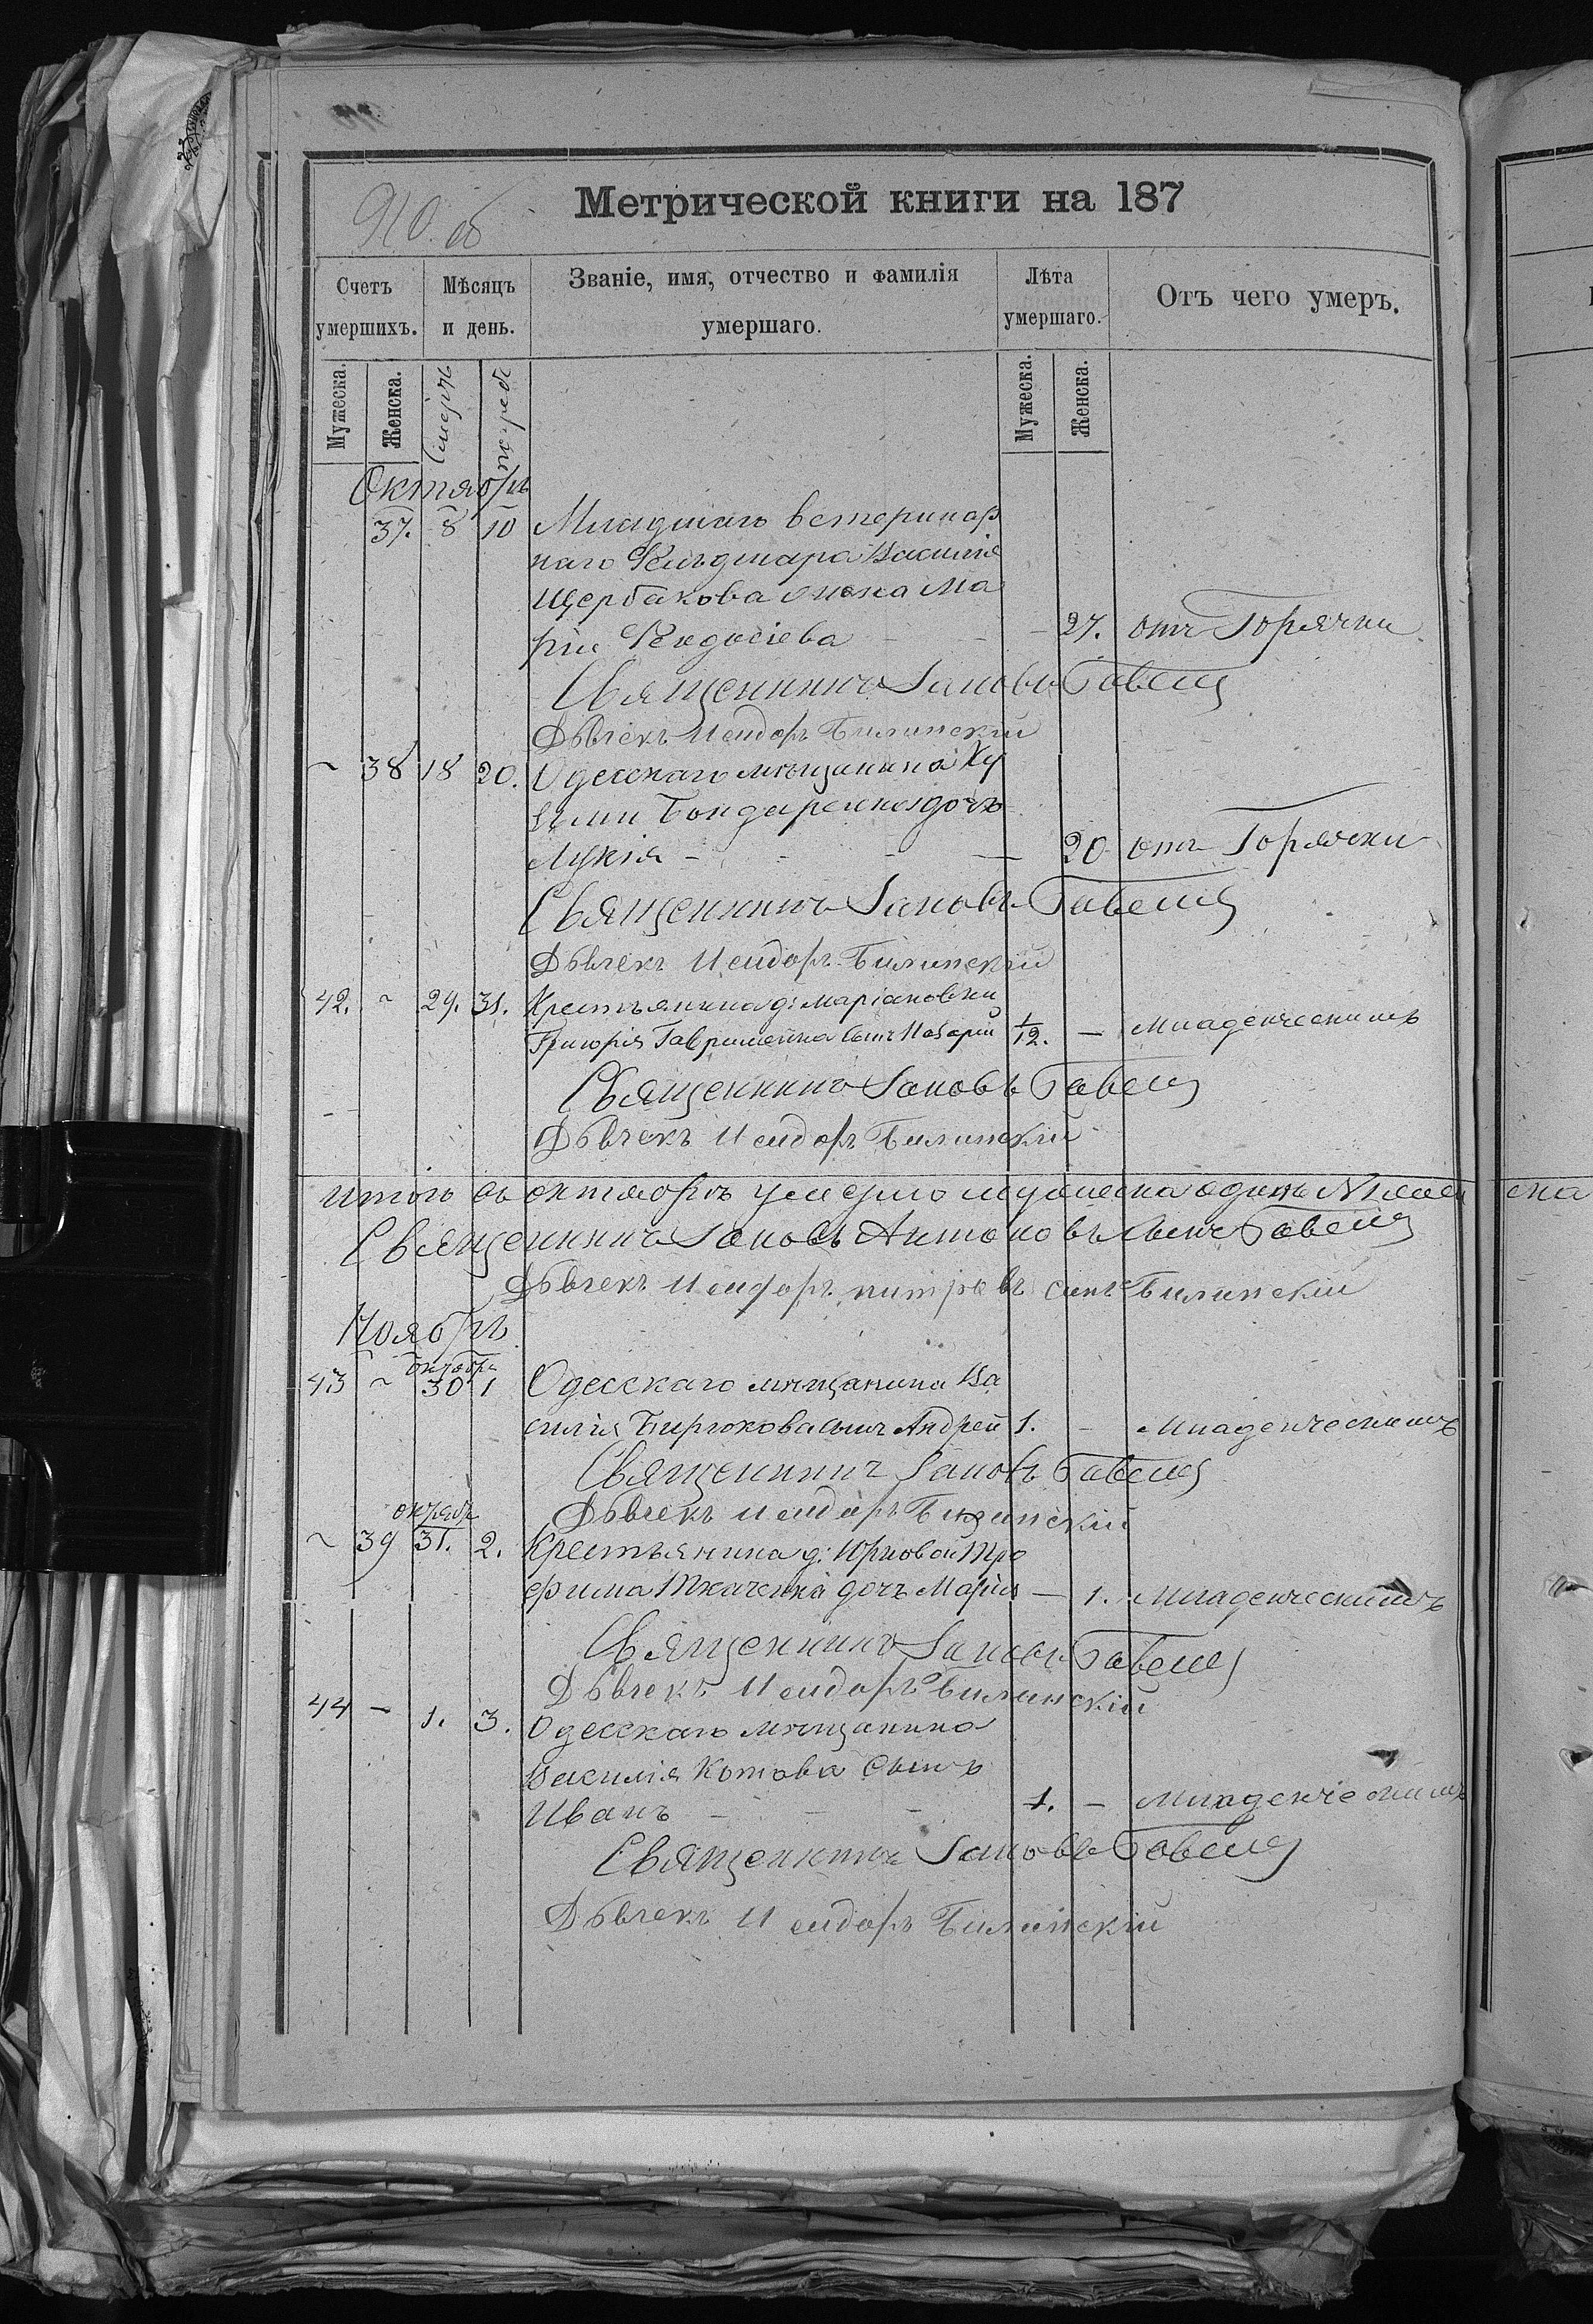 910. об
Метрической книги на 187
Счетъ умершихъ. Мѣсяцъ и день. Званіе, имя, отчество и фамилія умершаго. Лѣта умершаго. Отъ чего умеръ.
Мужеска. Женска. Смерть погреб Мужеска. Женска.
Октябрь
37. 8 10 Младшаго ветеринар
наго Фельдшара Василія
Щербакова жена Ма
рія Феодосіева - - 27. отъ Горячки
Священникъ Іаковъ Гавеля
Дьячекъ Исидоръ Билинскій
~ 38 18 20. Одесскаго мѣщанина Ку
зьмы Бондаренка дочь
Лукія - - - 20 отъ Горячки
Священникъ Іаковъ Гавеля
Дьячекъ Исидоръ Билинскій
42. ~ 29. 31. Крестьянина д: Маріановки
Григорія Гавришенка сынъ Назарій 1/12. — Младенческимъ
Священникъ Іаковъ Гавеля
Дьячекъ Исидоръ Билинскій
итого въ октябрѣ умерло мужеска одинъ ска
Священникъ Іаковъ Антоновъ сынъ Гавеля
Дьячекъ Исидоръ питровъ синъ Билинскій
Ноябрь
октября
43 ~ 30 1 Одесскаго мѣщанина Ва
силія Бирюкова сынъ Андрей 1. - Младенческимъ
Священникъ Іаковъ Гавеля
Дьячекъ Исидоръ Билинскій
октября
~ 39 31. 2. Крестьянина д: Юрковой Тро
фима Ткаченка дочь Марія — 1. Младенческимъ
Священникъ Іаковъ Гавеля
Дьячекъ Исидоръ Билинскій
44 - 1. 3. Одесскаго мѣщанина
Василія Котова сынъ
Иванъ - - - 1. - Младенческимъ
Священникъ Іаковъ Гавеля
Дьячекъ Исидоръ Билинскій